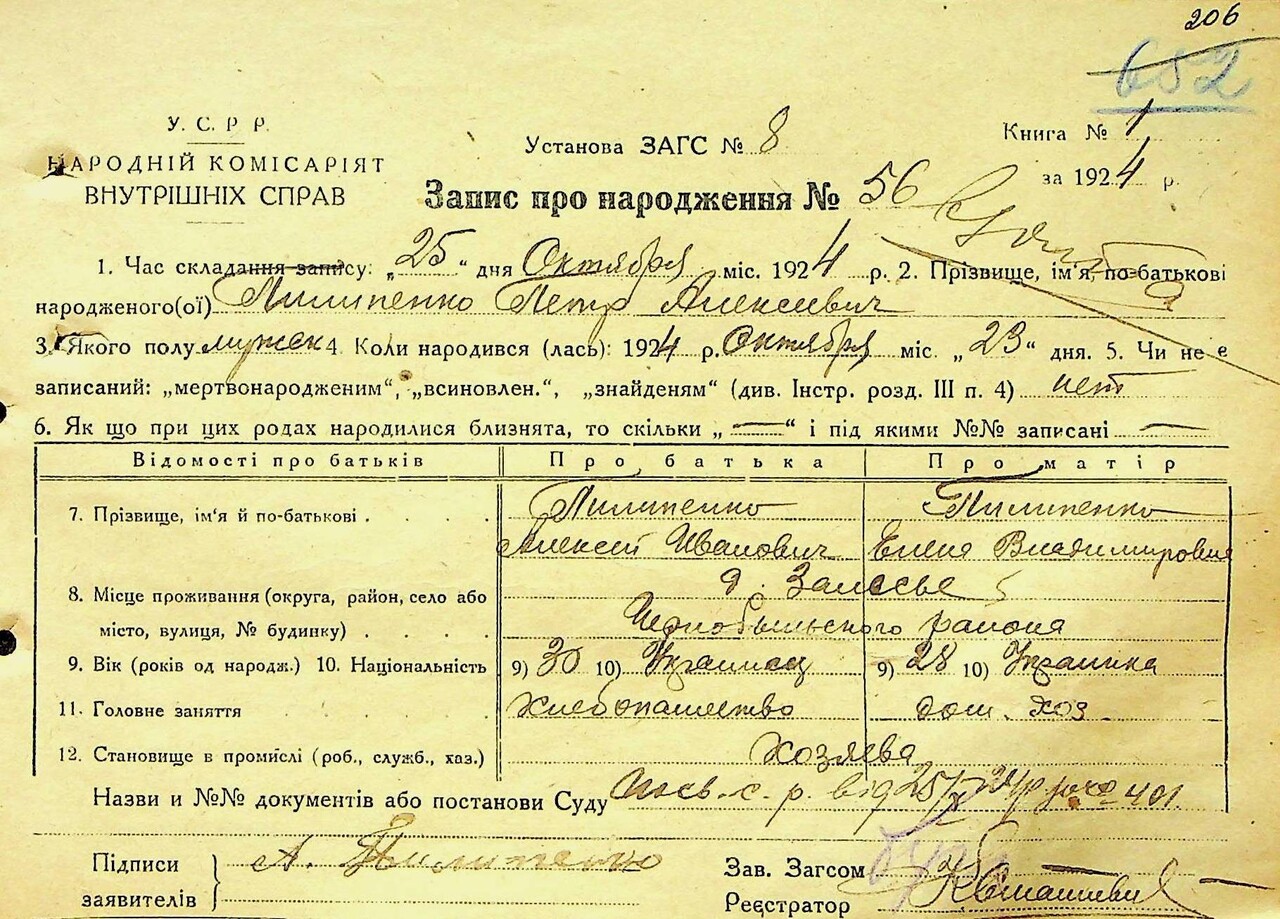 206
682
У. С. Р Р.
НАРОДНІЙ КОМІСАРІЯТ
ВНУТРІШНІХ СПРАВ
Установа ЗАГС № 8
Книга № 1
за 1924 р.
Запис про народження № 56
1. Час складання запису: „25“ дня Октября міс. 1924 р. 2. Прізвище, ім'я, по-батькові
народженого(ої) Пилипенко Петр Алексеевич
3. Якого полу мужск 4. Коли народився (лась): 1924 р. Октября міс. „23“ дня. 5. Чи не є
записаний: „мертвонародженим“, „всиновлен.“, „знайденям“ (див. Інстр. розд. III п. 4) нет
6. Як що при цих родах народилися близнята, то скільки „—“ і під якими №№ записані —
Відомості про батьків Про батька Про матір
7. Прізвище, ім'я й по-батькові . . . . Пилипенко Пилипенко
Алексей Иванович Елена Владимировна
8. Місце проживання (округа, район, село або д. Залесье
місто, вулиця, № будинку) . . . . Чернобыльского района
9. Вік (років од народж.) 10. Національність 9) 30 10) Украинец 9) 28 10) Украинка
11. Головне заняття . . . . . Хлебопашество дом. хоз.
12. Становище в промислі (роб., служб., хаз.) Хозяева
Назви и №№ документів або постанови Суду с. р. від 25/X 24р 401
Підписи
заявителів
А. Пилипенко
Зав. Загсом
Реєстратор